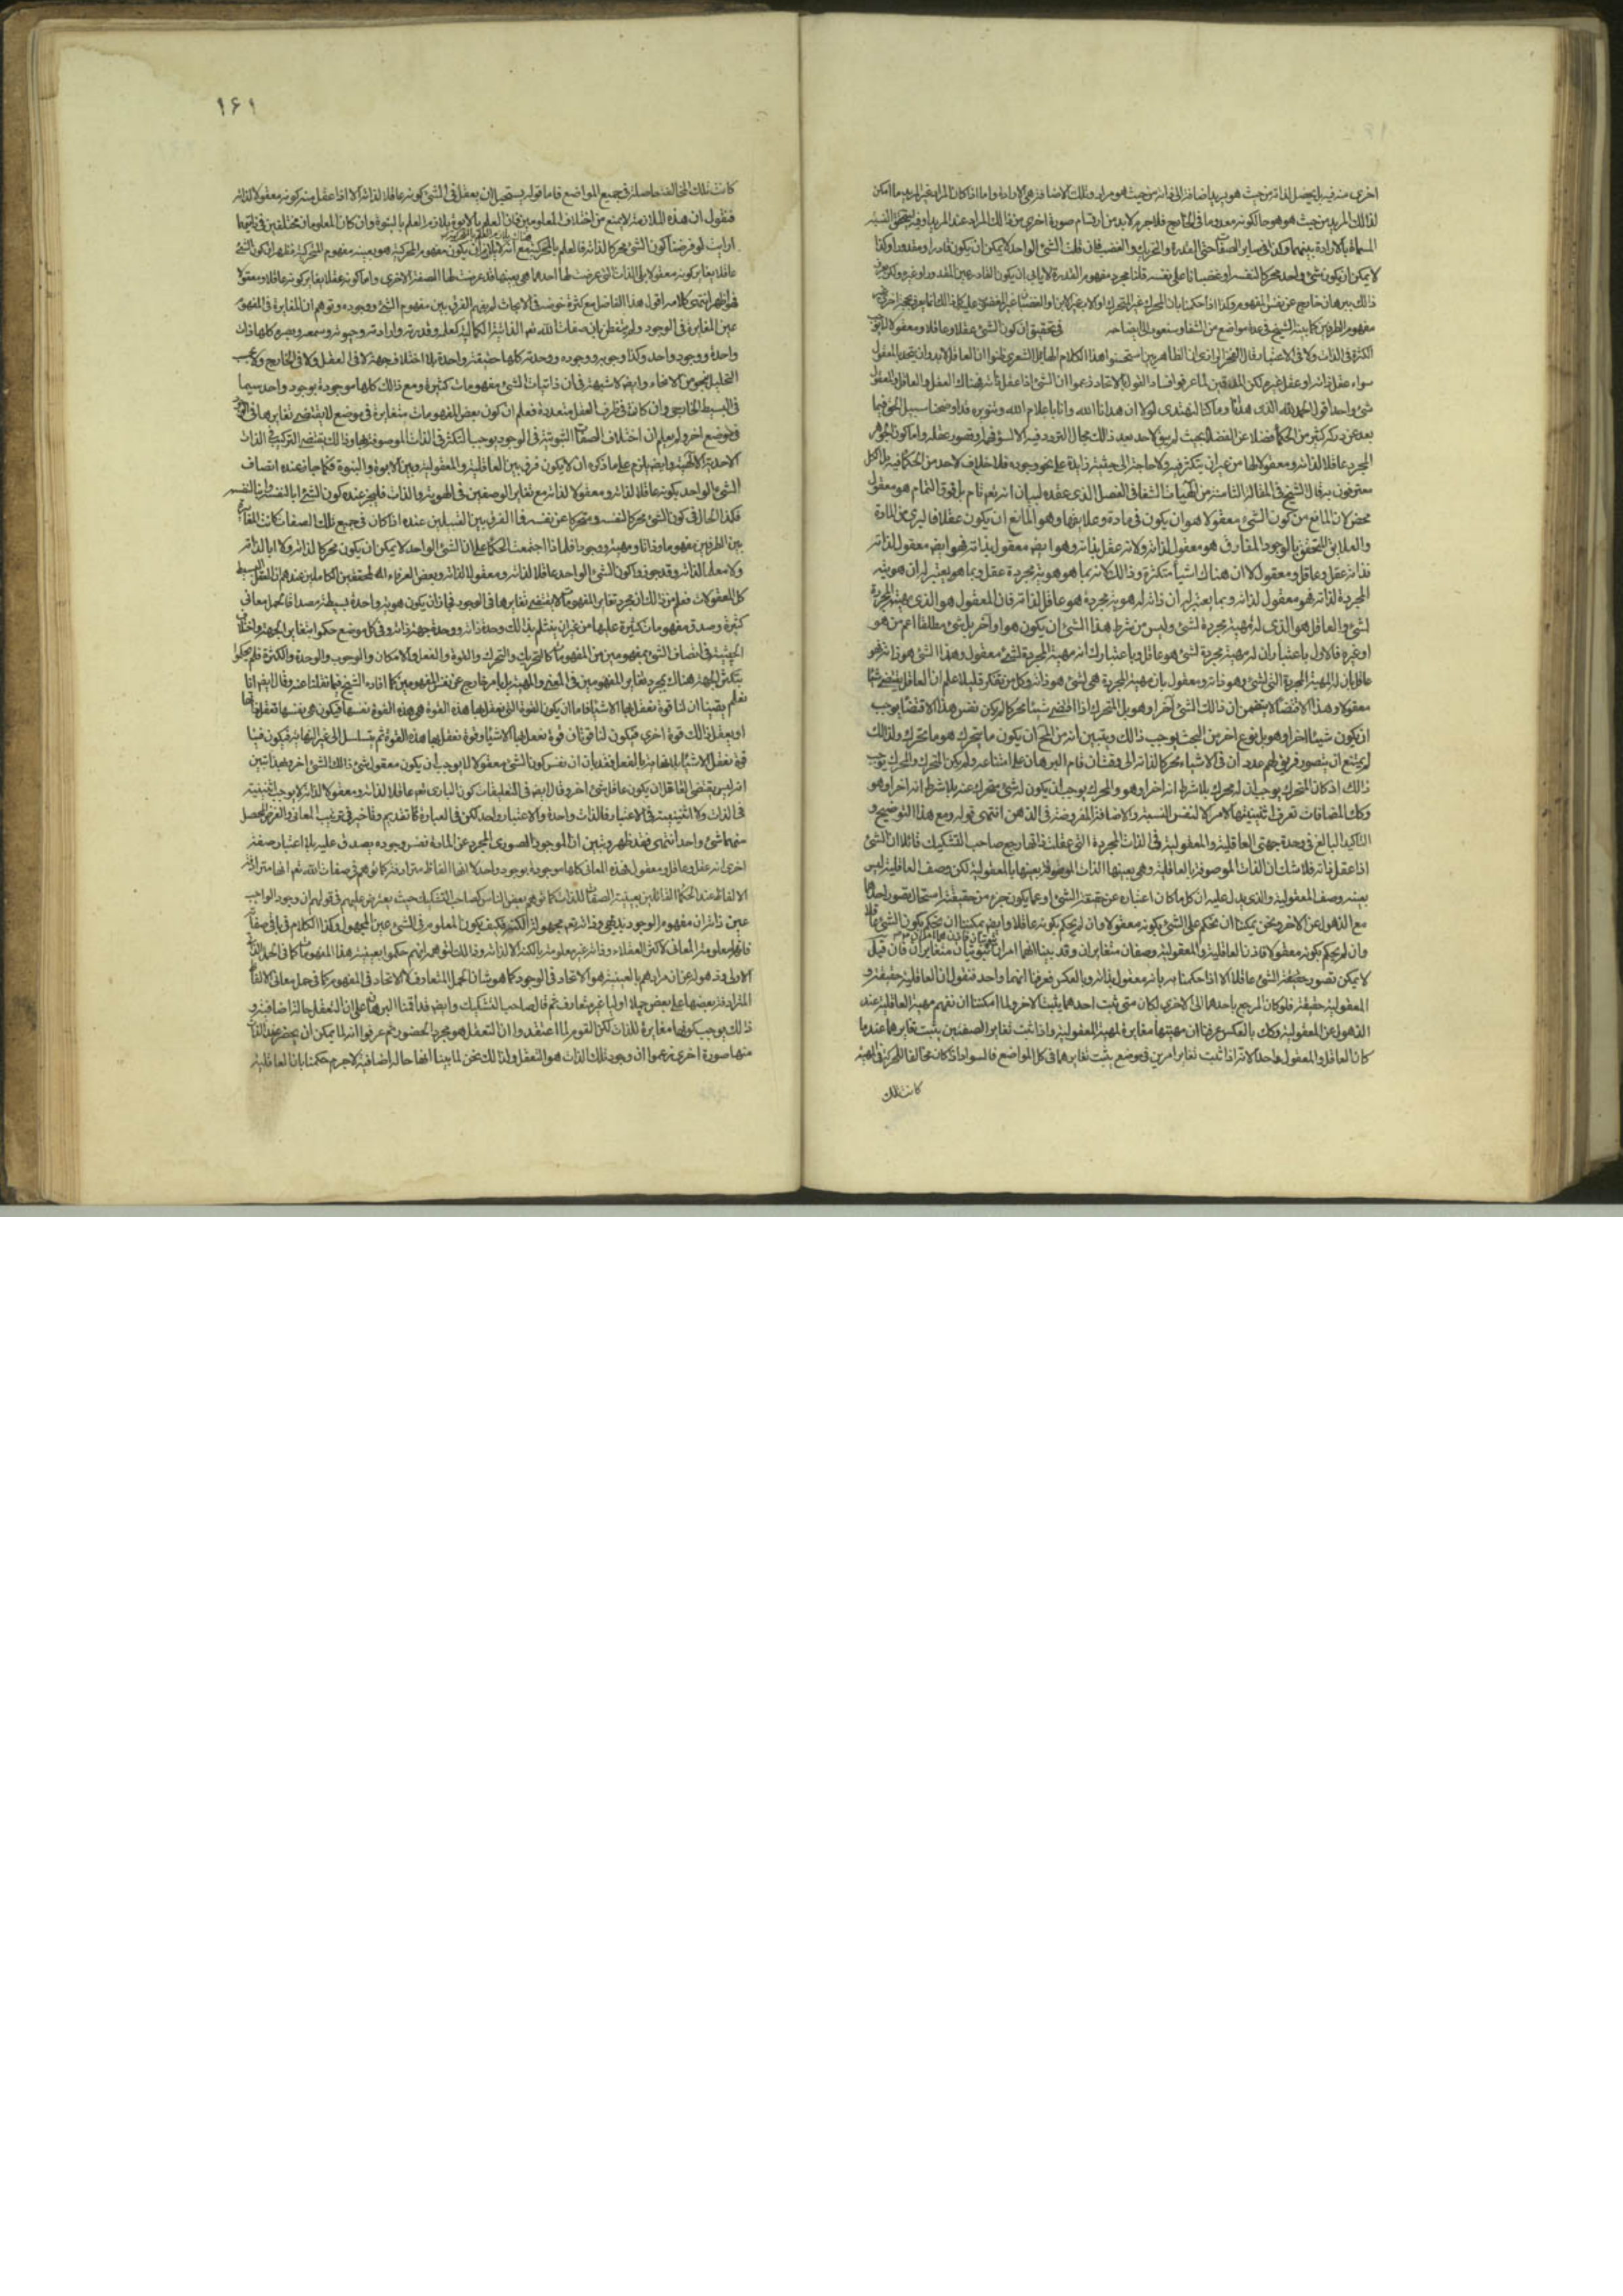 اخرى منه فيه بل يحصل لذاته من حيث هو مريد اضافة الى ذاته من حيث هو مراد وتلك الاضافة هي الارادة واما اذا كان المراد غير المريد
لذلك المريد من حيث هو هو حال كونه معدوما في الخارج فلا جرم لابد من ارتسام صورة اخرى من ذلك المراد عند المريد
المسماة بالارادة بينهما وكذا في ساير الصفات حتى القدرة والتحريك والغضب فان قلت الشيء الواحد لا يمكن ان يكون قادرا ومقدورا وكذا
لا يمكن ان يكون شيء واحد محركا لنفسه او غضبانا على نفسه قلنا مجرد مفهوم القدرة لا يابى ان يكون القادر عين المقدور او غيره
ذلك ببرهان خارج عن نفس المفهوم وكذا اذا حكمنا بان المحرك غير المتحرك
مفهوم الطرفين كما بينه الشيخ في عدة مواضع من الشفا وسنعود الى ايضاحه في تحقيق ان كون الشيء عقلا وعاقلا ومعقولا
الكثرة في الذات ولا في الاعتبار قال الفخر الرازي ان الظاهريين استحسنوا هذا الكلام الهايل الشعري وظنوا ان العاقل لابد وان يتحد بالمعقول
سواء عقل ذاته او عقل غيره لكن المدققين لما عرفوا فساد القول بالاتحاد زعموا ان الشيء اذا عقل ذاته فهناك العقل والعاقل والمعقول
شيء واحد اقول الحمد لله الذي هدانا وما كنا لنهتدي لولا ان هدانا الله وانا باعلام الله وتنويره قد اوضحنا سبيل الحق فيما
بعد عن دركه كثير من الحكماء فضلا عن الفضلاء بحيث لم يبق لاحد بعد ذلك مجال التردد فيه الا لسوء فهمه او قصور عقله واما كون الجوهر
المجرد عاقلا لذاته ومعقولا لها من غير ان يتكثر فيه ولا حاجة الى حيثية زايدة على نحو وجوده فلا خلاف لاحد من الحكماء فيه بل الكل
معترفون به قال الشيخ في المقالة الثامنة من الهيات الشفا في الفصل الذي عقده لبيان انه تعالى تام بل فوق التمام هو معقول
محض لان المانع من كون الشيء معقولا هو ان يكون في مادة وعلايقها وهو المانع ان يكون عقلا فالبرى عن المادة
والعلايق المتحقق بالوجود المفارق هو معقول لذاته ولانه عقل بذاته وهو ايضا معقول بذاته فهو ايضا معقول لذاته
فذاته عقل وعاقل ومعقول لا ان هناك اشياء متكثرة وذلك لانه بما هو هوية مجردة عقل وبما هو يعتبر له ان هويته
المجردة لذاته فهو معقول لذاته وبما يعتبر له ان ذاته له هوية مجردة هو عاقل لذاته فان المعقول هو الذي مهيته المجردة
لشيء والعاقل هو الذي له مهية مجردة لشيء وليس من شرط هذا الشيء ان يكون هو او آخر بل شيء مطلقا اعم من هو
او غيره فالاول باعتبار ان له مهية مجردة لشيء هو عاقل وباعتبارك انه مهيته المجردة لشيء معقول وهذا الشيء هو ذاته فهو
عاقل بان له المهية المجردة التي لشيء وهو ذاته ومعقول بان مهيته المجردة هي لشيء هو ذاته وكل من تفكر قليلا علم ان العاقل يقتضي شيئا
معقولا وهذا الاقتضاء لا يتضمن ان ذلك الشيء آخر او هو بل المتحرك اذا اقتضى شيئا محركا لم يكن نفس هذا الاقتضا يوجب
ان يكون شيئا اخر او هو بل نوع اخر من البحث يوجب ذلك ويتبين انه من المحال ان يكون ما يتحرك هو ما يحرك ولذلك
لم يمتنع ان يتصور فريق لهم عدد ان في الاشياء محركا لذاته الى وقت ان قام البرهان على امتناعه ولم يكن المتحرك والمحرك يوجب
ذلك اذ كان المتحرك يوجب ان له محرك بلا شرط انه اخر او هو والمحرك يوجب ان يكون له شيء متحرك عنه بلا شرط انه اخر او هو
وكذلك المضافات تعرف اثنينيتها لامر لا لنفس النسبة والاضافة المفروضة في الذهن انتهى قوله ومع هذا التوضيح و
التاكيد البالغ في وحدة جهتي العاقلية والمعقولية في الذات المجردة التي عقلت ذاتها رجع صاحب التشكيك قائلا ان الشيء
اذا عقل ذاته فلا شك ان الذات الموصوفة بالعاقلية هي بعينها الذات الموصوفة بعينها بالمعقولية لكن وصف العاقلية ليس
بعينه وصف المعقولية والذي يدل عليه ان كل ما كان اعتباره عن حقيقة الشيء او عما يكون جزء من حقيقته استحال تصور احدهما
مع الذهول عن الاخر ونحن يمكننا ان نحكم على الشيء بكونه معقولا وان لم نحكم بكونه عاقلا وايضا يمكننا ان نحكم بكون الشيء عاقلا
وان لم نحكم بكونه معقولا فاذن العاقلية والمعقولية وصفان متغايران وقد بينا انهما امران ثبوتيان متغايران فان قيل
لا يمكن تصور حقيقة الشيء عاقلا الا اذا حكمنا بانه معقول بذاته وبالعكس فعرفنا انهما واحد فنقول ان العاقلية حقيقة و
المعقولية حقيقة فلو كان المرجع باحدهما الى الاخرى لكان متى ثبت احدهما يثبت الاخر ولما امكننا ان نفهم مهية العاقلية عند
الذهول عن المعقولية وكذلك بالعكس عرفنا ان مهيتها مغايرة لمهية المعقولية واذا ثبت تغاير الصفتين يثبت تغايرهما عندما
كان العاقل والمعقول واحدا لانه اذا ثبت تغاير امرين في موضع يثبت تغايرهما في كل المواضع فالسواد اذا كان مخالفا للحركة في المهية
كانت تلك
١٤١
كانت تلك المخالفة حاصلة في جميع المواضع فاما قوله يستحيل ان يعقل في الشيء كونه عاقلا لذاته الا اذا عقل منه كونه معقولا لذاته
فنقول ان هذه الملازمة لا يمنع من اختلاف المعلومين فان العلم بالابوة يلازم العلم بالبنوة وان كان المعلومان مختلفين في ذاتيهما
ارايت لو فرضنا كون الشيء محركا لذاته فالعلم بالمحركية مع انه لا يلزم ان يكون مفهوم المحركية هو بعينه مفهوم المتحركية فظهر ان كون الشيء
عاقلا يغاير كونه معقولا بل الذات التي عرضت لها احدهما هي بعينها قد عرضت لها الصفة الاخرى واما كونه عقلا يغاير كونه عاقلا ومعقولا
فهو ظاهر انتهى كلامه اقول هذا الفاضل مع كثرة خوضه في الابحاث لم يفهم الفرق بين مفهوم الشيء ووجوده وتوهم ان المغايرة في المفهوم
عين المغايرة في الوجود ولم يتفطن بان صفات الله تعالى الذاتية الكمالية كعلمه وقدرته وارادته وحيوته وسمعه وبصره كلها ذات
واحدة ووجود واحد وكذا وجوبه ووجوده ووحدته كلها حقيقة واحدة بلا اختلاف جهة لا في العقل ولا في الخارج ولا بحسب
التحليل بنحو من الانحاء وايضا لا شبهة في ان ذاتيات الشيء مفهومات كثيرة ومع ذلك كلها موجودة بوجود واحد سيما
في البسيط الخارجي وان كانت في ظرف العقل متعددة فعلم ان كون بعض المفهومات متغايرة في موضع لا يقتضي تغايرها في
في موضع اخر ولم يعلم ان اختلاف الصفات الثبوتية في الوجود يوجب التكثر في الذات الموصوفة بها وذلك يقتضي التركيب في الذات
الاحدية الالهية وايضا يلزم على ما ذكره ان لا يكون فرق بين العاقلية والمعقولية وبين الابوة والبنوة فكما جاز عنده اتصاف
الشيء الواحد بكونه عاقلا لذاته ومعقولا لذاته مع تغاير الوصفين في الهوية والذات فليجز عنده كون الشيء ابا لنفسه وابنا لنفسه
فكذا الحال في كون الشيء محركا لنفسه ومتحركا عن نفسه فما الفرق بين القبيلين عنده اذا كان في جميع تلك الصفات كانت المغايرة
بين الطرفين مفهوما وذاتا ومهية ووجودا فلماذا اجتمعت الحكماء على ان الشيء الواحد لا يمكن ان يكون محركا لذاته ولا ابا لذاته
ولا معلما لذاته وقد جوزوا كون الشيء الواحد عاقلا لذاته ومعقولا لذاته وبعض العرفاء المحققين الكاملين عندهم ان العقل البسيط
كل المعقولات فعلم من ذلك ان مجرد تغاير المفهومات لا يقتضي تغايرها في الوجود فجاز ان يكون هوية واحدة بسيطة مصداقا لحمل معاني
كثيرة وصدق مفهومات كثيرة عليها من غير ان ينثلم بذلك وحدة ذاته ووحدة جهة ذاته وفي كل موضع حكموا بتغاير الجهة واختلاف
الحيثية في اتصاف الشيء بمفهومين من المفهومات كالتحريك والتحرك والقوة والفعل والامكان والوجوب والوحدة والكثرة فلم يحكموا
بتكثر الجهة هناك بمجرد تغاير المفهومين في المعنى والمهية بل بامر خارج عن نفس المفهومين كما افاده الشيخ فيما نقلنا عنه وقال ايضا انا
نعلم يقينا ان لنا قوة نعقل بها الاشياء فاما ان يكون القوة التي نعقل بها هذه القوة هي هذه القوة نفسها فيكون هي نفسها تعقل ذاتها
او يعقل ذلك قوة اخرى فيكون لنا قوتان قوة نعقل بها الاشياء وقوة نعقل بها هذه القوة ثم يتسلسل الى غير النهاية فيكون فينا
قوة نعقل الاشياء بلا نهاية بالفعل فقد بان ان نفس كون الشيء معقولا لا يوجب ان يكون معقول شيء ذلك الشيء اخر وبهذا تبين
انه ليس يقتضي العاقل ان يكون عاقل شيء اخر وقال ايضا في التعليقات كون الباري تعالى عاقلا لذاته ومعقولا لذاته لا يوجب اثنينية
في الذات ولا اثنينية في الاعتبار فالذات واحدة والاعتبار واحد لكن في العبارة تقديم وتاخير في ترتيب المعاني والغرض المحصل
منهما شيء واحد انتهى فقد ظهر وتبين ان الموجود الصوري المجرد عن المادة نفس وجوده يصدق عليه بلا اعتبار صفة
اخرى انه عقل وعاقل ومعقول فهذه المعاني كلها موجودة بوجود واحد لا انها الفاظ مترادفة كما توهم في صفات الله تعالى انها مترادفة
الالفاظ عند الحكماء القائلين بعينية الصفات للذات كما توهم بعض الناس كصاحب التشكيك حيث يعترض عليهم في قولهم ان وجود الواجب
عين ذاته ان مفهوم الوجود بديهي وذاته تعالى مجهولة الكنه فكيف يكون المعلوم من الشيء عين المجهول وكذا الكلام في باقي صفاته
فانها معلومة المعاني لاكثر العقلاء وذاته غير معلومة بالكنه الا لذاته وذلك لتوهمه انهم حكموا بعينية هذا المفهومات كما في الحمل الذاتي
الاولى وقد هو لم يعن ان مرادهم بالعينية هو الاتحاد في الوجود كما هو شان الحمل المتعارف لا الاتحاد في المفهوم كما في حمل معاني الالفاظ
المترادفة بعضها على بعض حملا اوليا غير متعارف ثم قال صاحب التشكيك وايضا قد اقمنا البرهان على ان التعقل حالة اضافية و
ذلك يوجب كونها مغايرة للذات لكن القوم لما اعتقدوا ان التعقل هو مجرد الحضور ثم عرفوا انه لا يمكن ان يحضر عند الذات
منها صورة اخرى زعموا ان وجود تلك الذات هو التعقل ولذلك نحن لما بينا انها حالة اضافية لا جرم حكمنا بان العاقلية